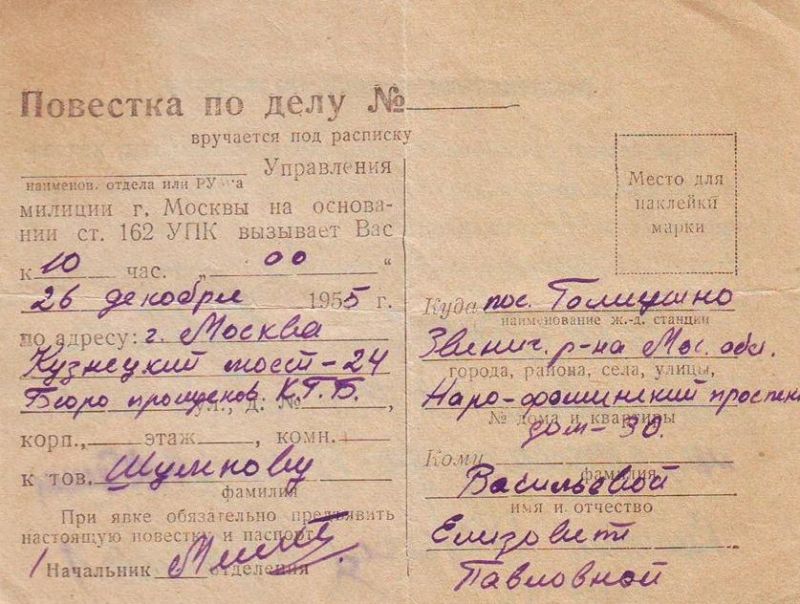 Повестка по делу №
вручается под расписку
Управления
наименов. отдела или РУ
милиции г. Москвы на основа-
нии ст. 162 УПК вызывает Вас
к 10 час. „ 00 “
26 декабря 1955 г.
по адресу: г. Москва
Кузнецкий мост-24
Бюро пропусков К.Г.Б.
ул., д. № ,
корп., этаж , комн.
к тов. Шумнову
фамилия
При явке обязательно предъявить
настоящую повестку и паспорт
Начальник отделения
Место для
наклейки
марки
Куда пос. Голицино
наименование ж.-д. станции
Звениг. р-на Мос. обл.
города, района, села, улицы,
Наро-фоминский проспект
№ дома и квартиры
дом-30.
Кому
фамилия
Васильевой
имя и отчество
Елизовете
Павловной